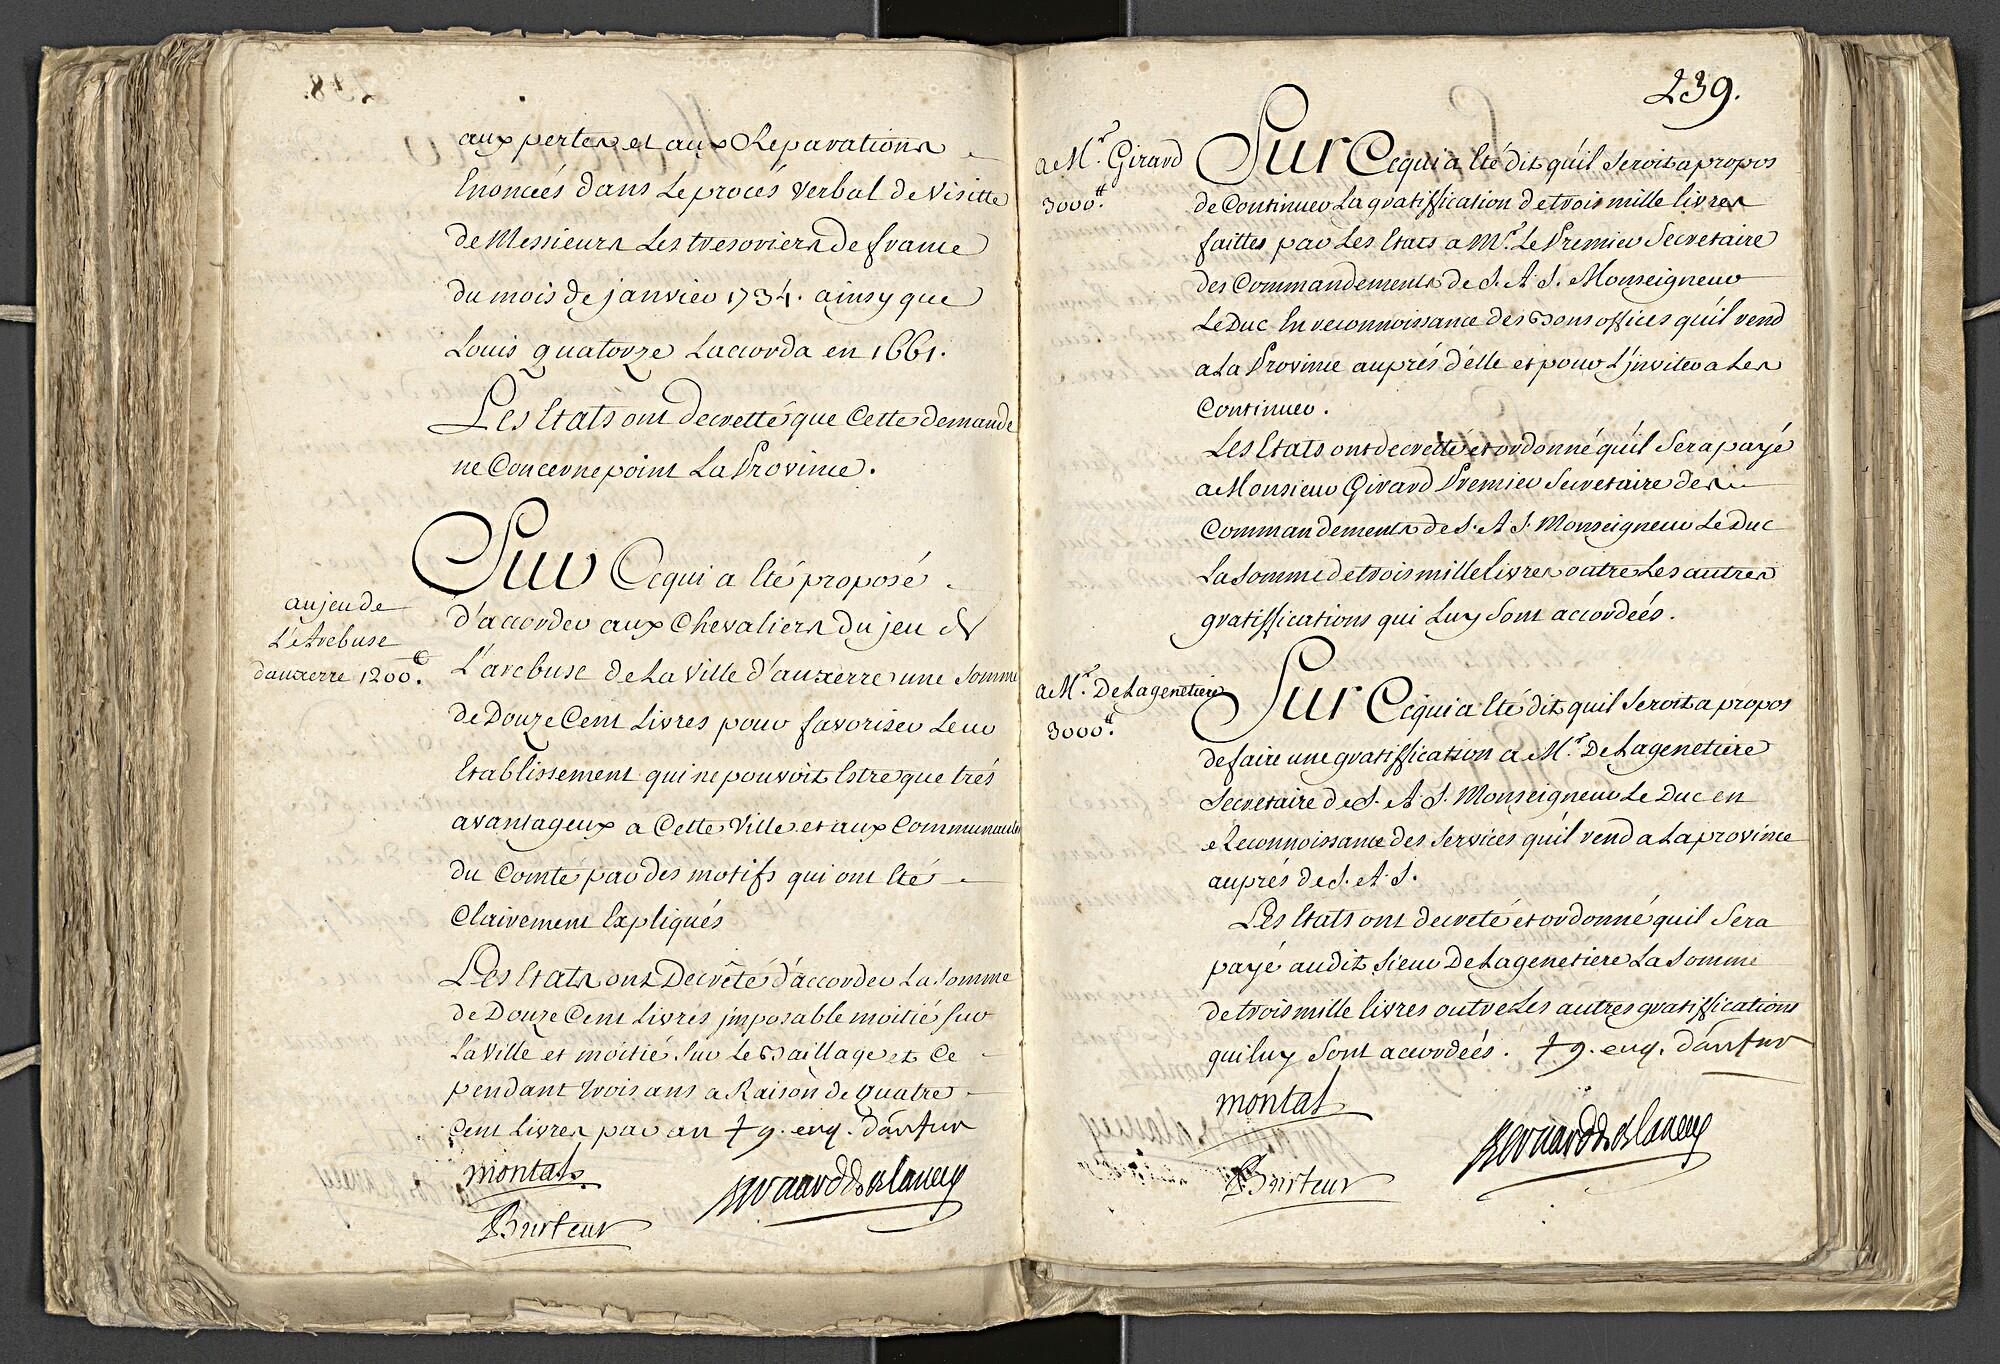 aux pertes et aux Reparations
Enoncées dans Le procés verbal de Visitte
de Messieurs Les tresoriers de france
du mois de janvier 1734. ainsy que
Louis quatorze Laccorda en 1661.
Les Etats ont decretté que Cette demande
ne Concerne point La Province.
au jeu de
L'Arcbuse
d'auxerre 1200.
Sur Ce qui a Eté proposé
d'accorder aux Chevaliers du jeu de
L'arcbuse de La Ville d'auxerre une Somme
de Douze Cent Livres pour favoriser Leur
Etablissement qui ne pouvoit Estre que trés
avantageux a Cette Ville et aux Communautés
du Comté par des motifs qui ont Eté
Clairement Expliqués
Les Etats ont Decrêté d'accorder La Somme
de Douze Cent Livres jmposable moitié Sur
La Ville et moitié Sur Le Baillage et Ce
pendant trois ans a Raison de quatre
Cent Livres par an
montal
Bernard de Blancey
239.
a Mr. Girard
3000tt.
Sur Ce qui a Eté dit qu'il Seroit a propos
de Continuer La gratiffication de trois mille livres
faittes par Les Etats a Mr. Le Premier Secretaire
des Commandements de S. A. S. Monseigneur
Le Duc En reconnoissance des Bons offices qu'il rend
a La Province auprés d'elle et pour L'jnviter a Les
Continuer.
Les Etats ont decretté et ordonné qu'il Sera payé
a Monsieur Girard Premier Secretaire des
Commandements de S. A. S. Monseigneur Le Duc
La Somme de trois mille livres outre Les autres
gratiffications qui Luy Sont accordeés.
a Mr. De Lagenetiere
3000tt.
Sur Ce qui a Eté dit quil Seroit a propos
de faire une gratiffication a Mr. De Lagenetiere
Secretaire de S. A. S. Monseigneur Le Duc en
Reconnoissance des Services qu'il rend a La province
auprés de S. A. S.
Les Etats ont decreté et ordonné quil Sera
payé audit Sieur De Lagenetiere La Somme
de trois mille livres outre Les autres gratiffications
qui luy Sont accordeés.
montal
Bernard de Blancey